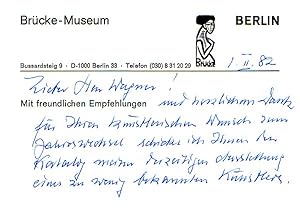 Brücke-Museum
BERLIN
Brücke
Bussardsteig 9 · D-1000 Berlin 33 · Telefon (030) 8 31 20 29
1. II. 82
Lieber Herr Wagner!
Mit freundlichen Empfehlungen und herzlichem Dank
für Ihren künstlerischen Wunsch zum
Jahreswechsel schicke ich Ihnen den
Katalog meiner derzeitigen Ausstellung
eines zu wenig bekannten Künstlers.